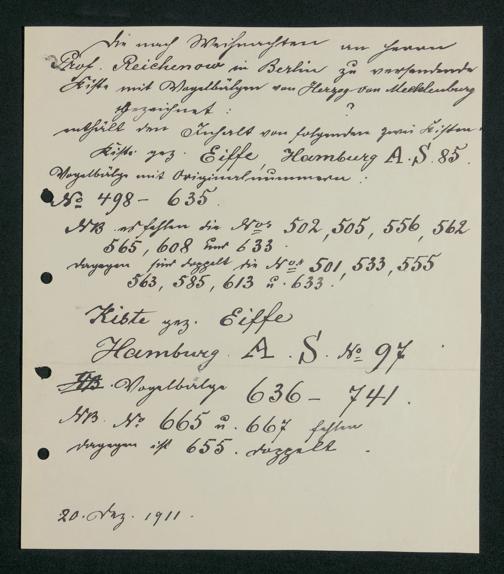 Die nach Weihnachten an Herrn
Prof. Reichenow in Berlin zu versendende
Kiste mit Vogelbälgen von Herzog von Mecklenburg
Gezeichnet : ?
enthält den Inhalt von folgenden zwei Kisten.
Kiste gez. Eiffe, Hamburg A. S. 85.
Vogelbälge mit Originalnummern :
No 498 – 635.
NB. es fehlen die Nos 502, 505, 556, 562
565, 608 und 633.
dagegen sind doppelt die Nos 501, 533, 555
563, 585, 613 u. 633.
Kiste gez. Eiffe
Hamburg. A. S. No 97
NB Vogelbälge 636 – 741.
NB. No 665 u. 667 fehlen
dagegen ist 655. doppelt.
20. Dez. 1911.